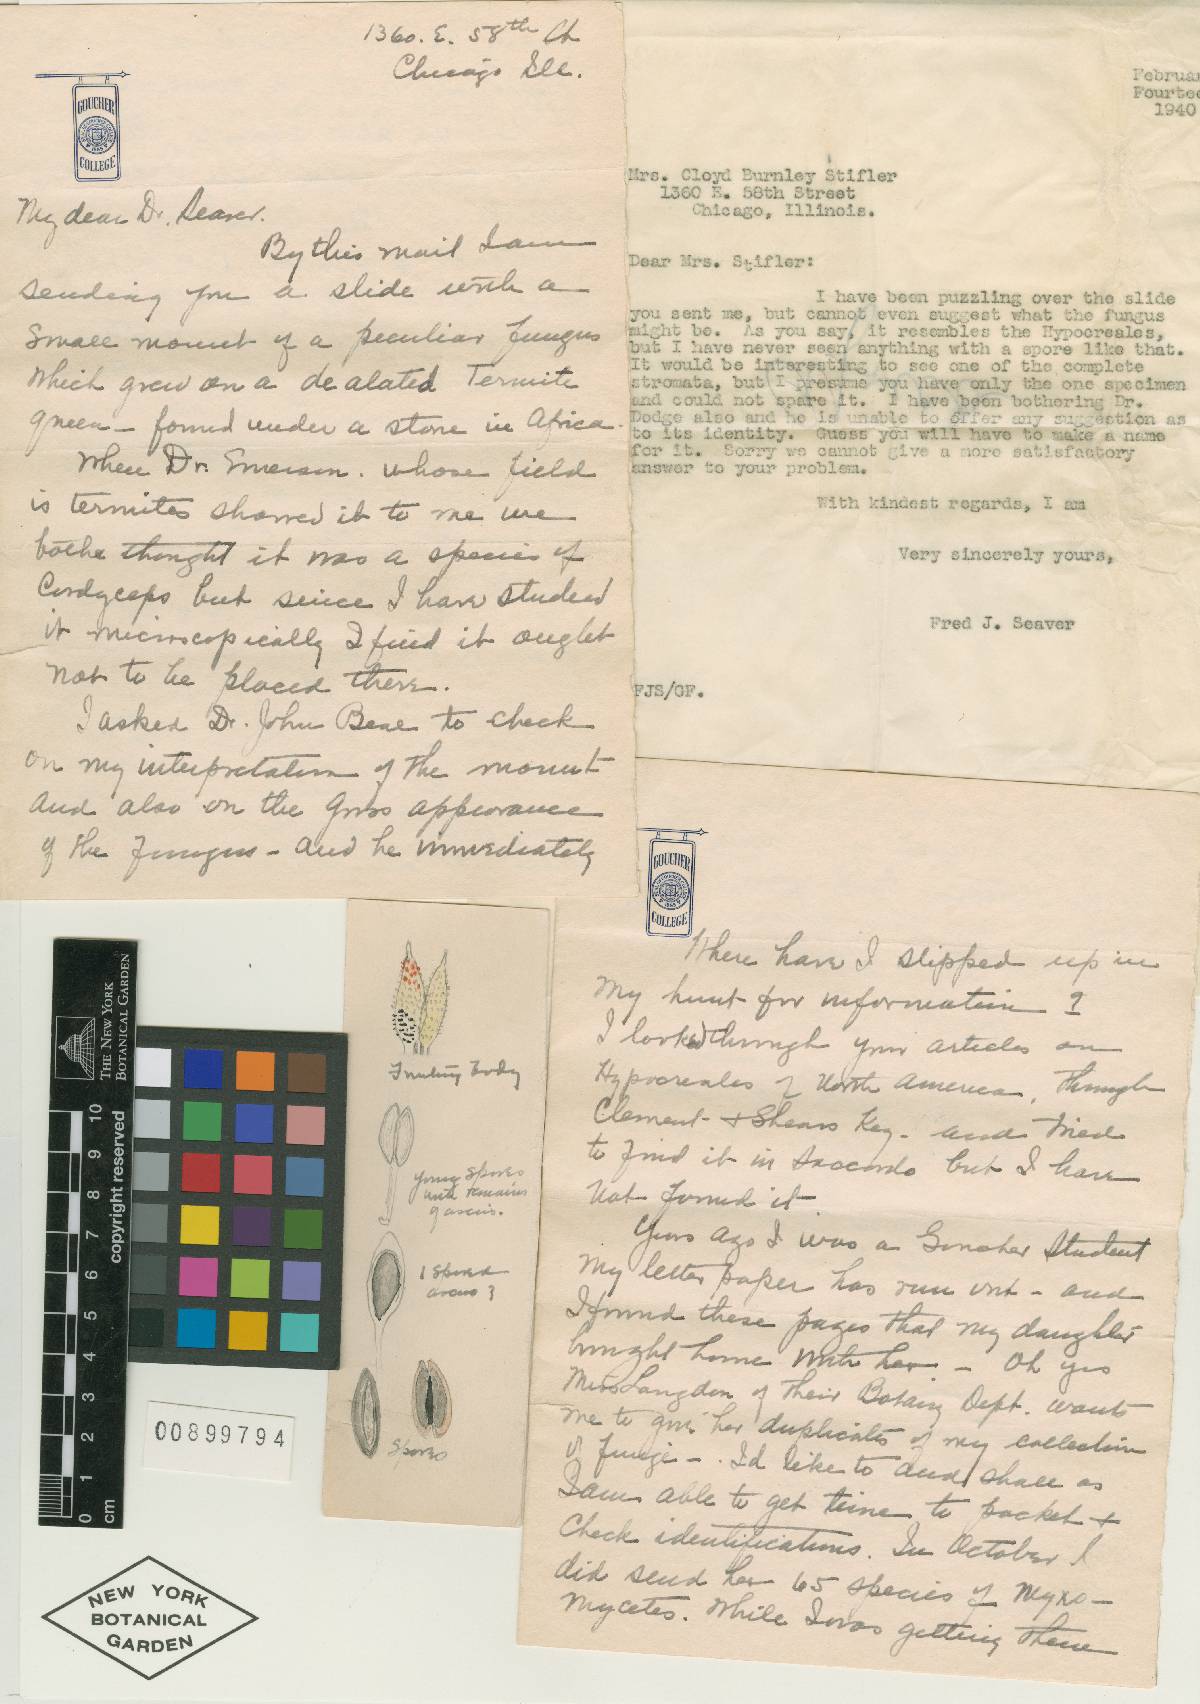 1360. E. 58th St
Chicago Ill.
GOUCHER
COLLEGE
My dear Dr. Seaver.
By this mail I am
sending you a slide with a
small mount of a peculiar fungus
which grew on a dealated Termite
queen - found under a stone in Africa.
When Dr. Emerson. whose field
is termites showed it to me we
bothe thought it was a species of
Cordyceps but seince I have studied
it microscopically I find it ought
not to be placed there.
I asked Dr. John to check
on my interpretation of the mount
and also on the gross appearance
of the fungus - and he immediately
Februar
Fourtee
1940
Mrs. Cloyd Burnley Stifler
1360 E. 58th Street
Chicago, Illinois.
Dear Mrs. Stifler:
I have been puzzling over the slide
you sent me, but cannot even suggest what the fungus
might be. As you say, it resembles the Hypocreales,
but I have never seen anything with a spore like that.
It would be interesting to see one of the complete
stromata, but I presume you have only the one specimen
and could not spare it. I have been bothering Dr.
Dodge also and he is unable to offer any suggestion as
to its identity. Guess you will have to make a name
for it. Sorry we cannot give a more satisfactory
answer to your problem.
With kindest regards, I am
Very sincerely yours,
Fred J. Seaver
FJS/GF.
GOUCHER
COLLEGE
Where have I slipped up in
my hunt for information ?
I looked through your articles on
Hypocreales of North America, through
Clement + Shears Key. and tried
to find it in Saccardo but I have
not found it.
Years ago I was a Goucher student
My letter paper has run out - and
I found these pages that my daughter
brought home with her - Oh yes
Miss Langdon of their Botany Dept. wants
me to give her duplicates of my collection
of fungi - . I'd like to and shall as
I am able to get time to packet +
check identifications. In October I
did send her 65 species of Myxo-
mycetes. While I was getting these
Fruiting Body
young spores
with remains
of ascus.
1 spored
ascus ?
Spores
THE NEW YORK
BOTANICAL GARDEN
copyright reserved
10
9
8
7
6
5
4
3
2
1
0
cm
00899794
NEW YORK
BOTANICAL
GARDEN